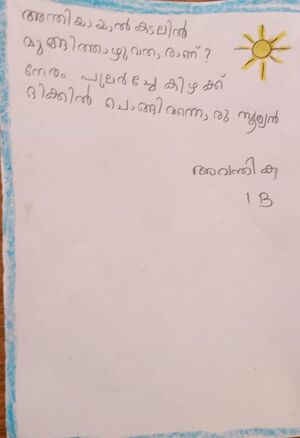 അന്തിയായാൽ കടലിൽ
മുങ്ങിത്താഴുവതാരാണ്?
നേരം പുലർച്ചേ കിഴക്ക്
ദിക്കിൽ പൊങ്ങിവന്നൊരു സൂര്യൻ
അവന്തിക
1 B